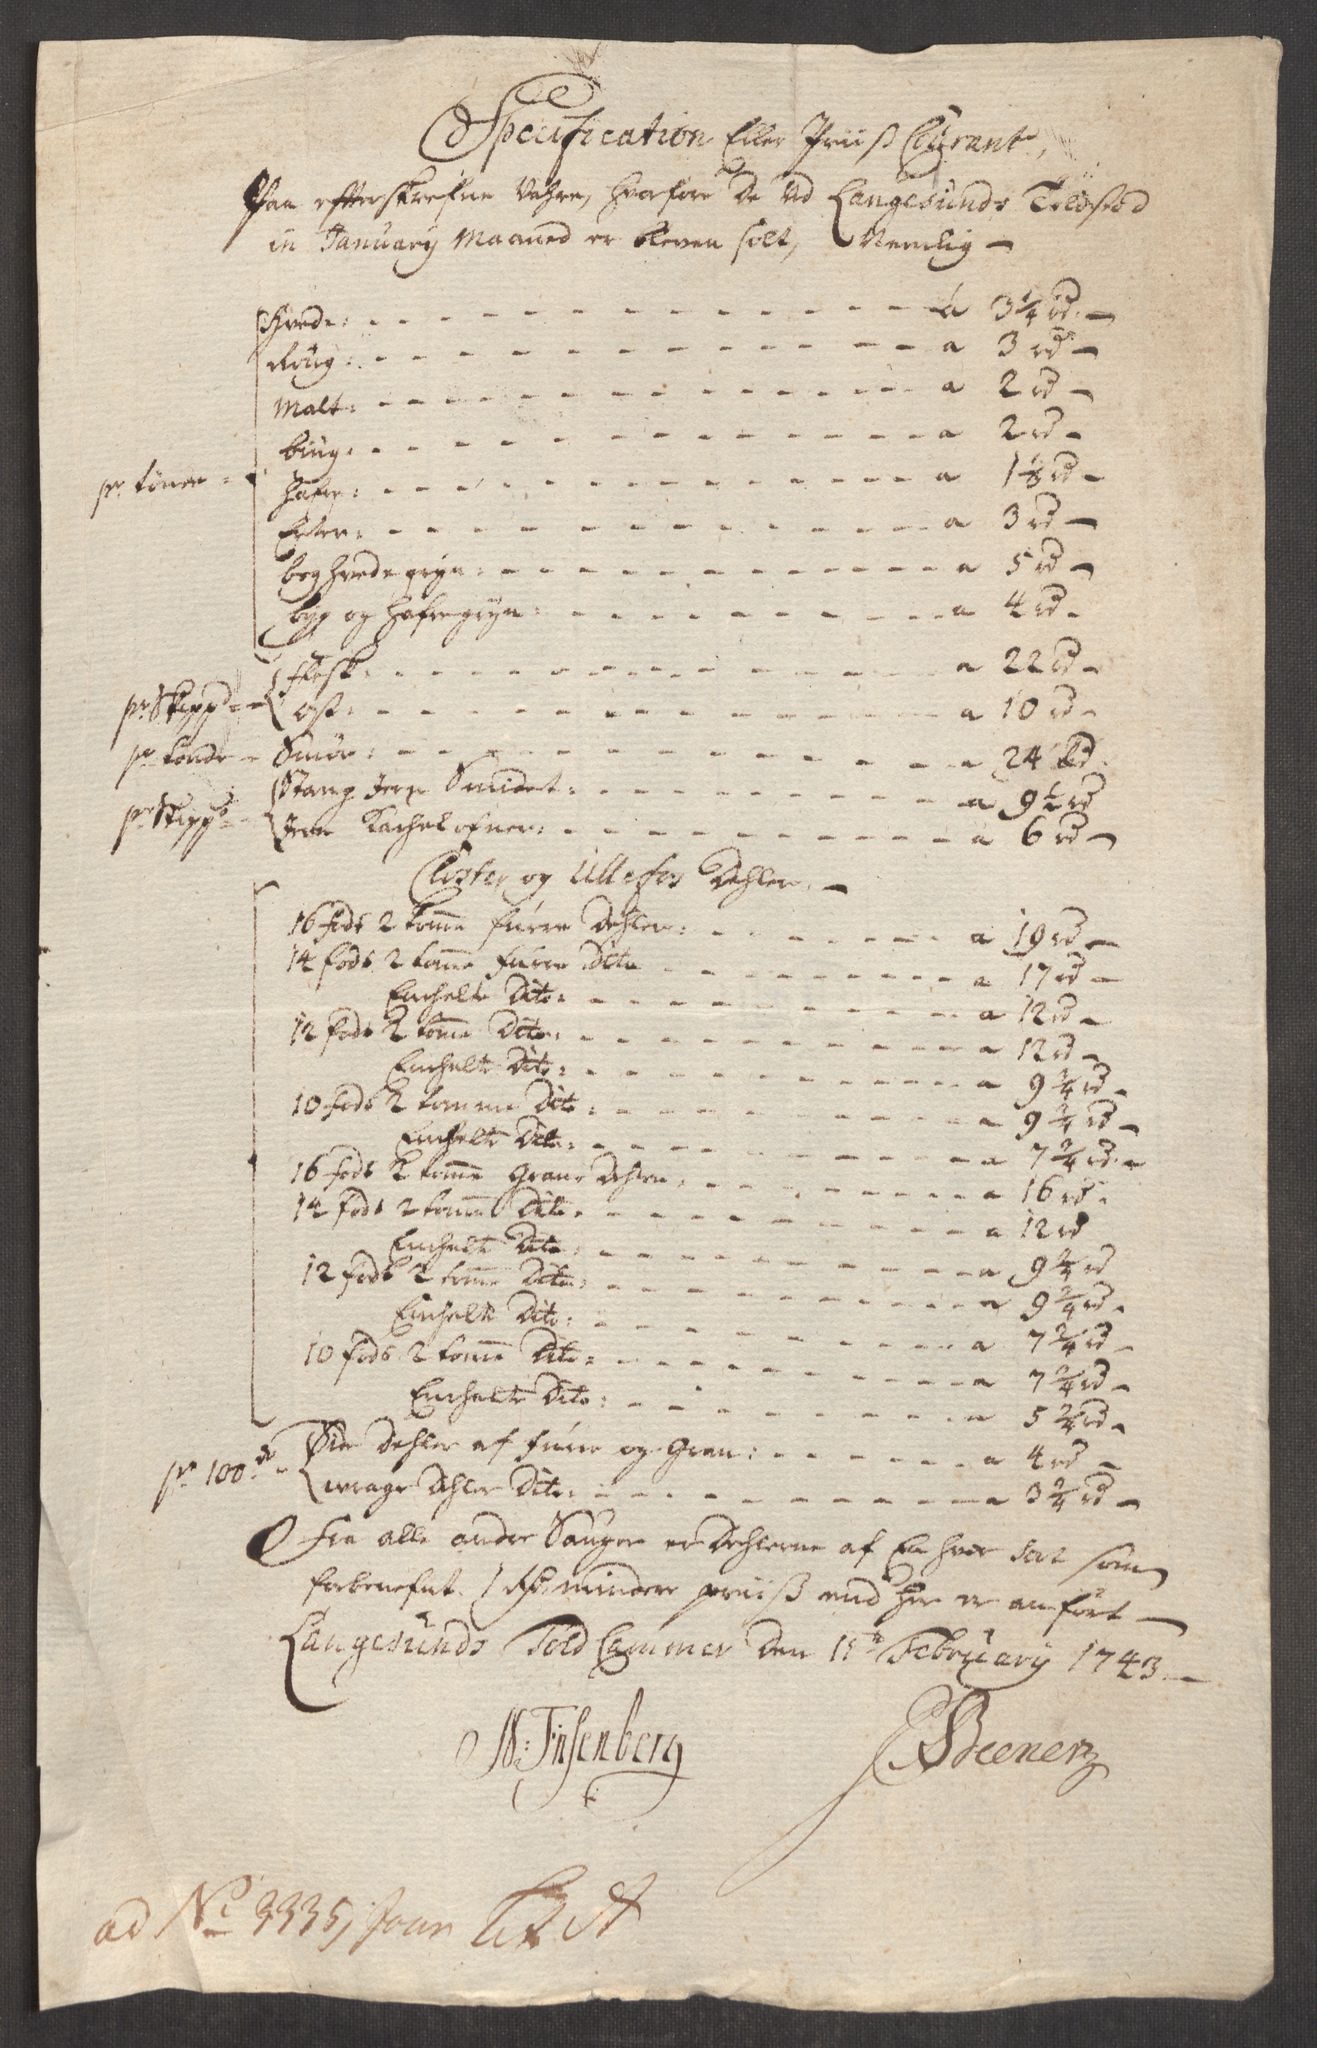 Specification Eller Priis Courant,
Paa efterskrefne Vahre, hvorfore de ved Langesunds Toldsted
in January Maaned er bleven solt, Nemlig
Hvede: a 3 1/4 rd
Roug: a 3 rd
Malt: a 2 rd
biug: a 2 rd
pr tønne
Hafre: a rd
Erter: a 3 rd
boghvede gryn: a 5 rd
byg og hafregryn: a 4 rd
Flesk: a 22 rd
pr Skippd
ost: a 10 rd
pr tønde Smør: a 24 rd
Stang Jern Smidet: a 9 1/2 rd
pr Skippd
Jern Kachelofner: a 6 rd
Closter og Ullefos Dehler
16 fods 2 tomme furre Dehler: a 19 rd
14 fods 2 tomme furre Dito a 17 rd
Enchelte Dito: a 12 rd
12 fods 2 tomme Dito: a 12 rd
Enchelte Dito: a 9 2/4 rd
10 fods 2 tomme Dito: a 9 2/4 rd
Enchelte Dito: a 7 2/4 rd
16 fods 2 tomme Grane Dehler: a 16 rd
14 fods 2 tomme Dito: a 12 rd
Enchelte Dito: a 9 2/4 rd
12 fods 2 tomme Dito: a 9 2/4 rd
Enchelte Dito: a 7 2/4 rd
10 fods 2 tomme Dito: a 7 2/4 rd
Enchelte Dito: a 5 2/4 rd
pr 100de
Dehler af furre og Gran: a 4 rd
wrage Dehler Dito: a 3 2/4 rd
Fra alle andre Sauger er Dehlerne af En hver sort som
forbenefnt 1 Rd: mindere priis end her er anført
Langesunds Told Cammer Den 11te February 1743
N: Fisenberg
ad No 3335, Jour Lit A